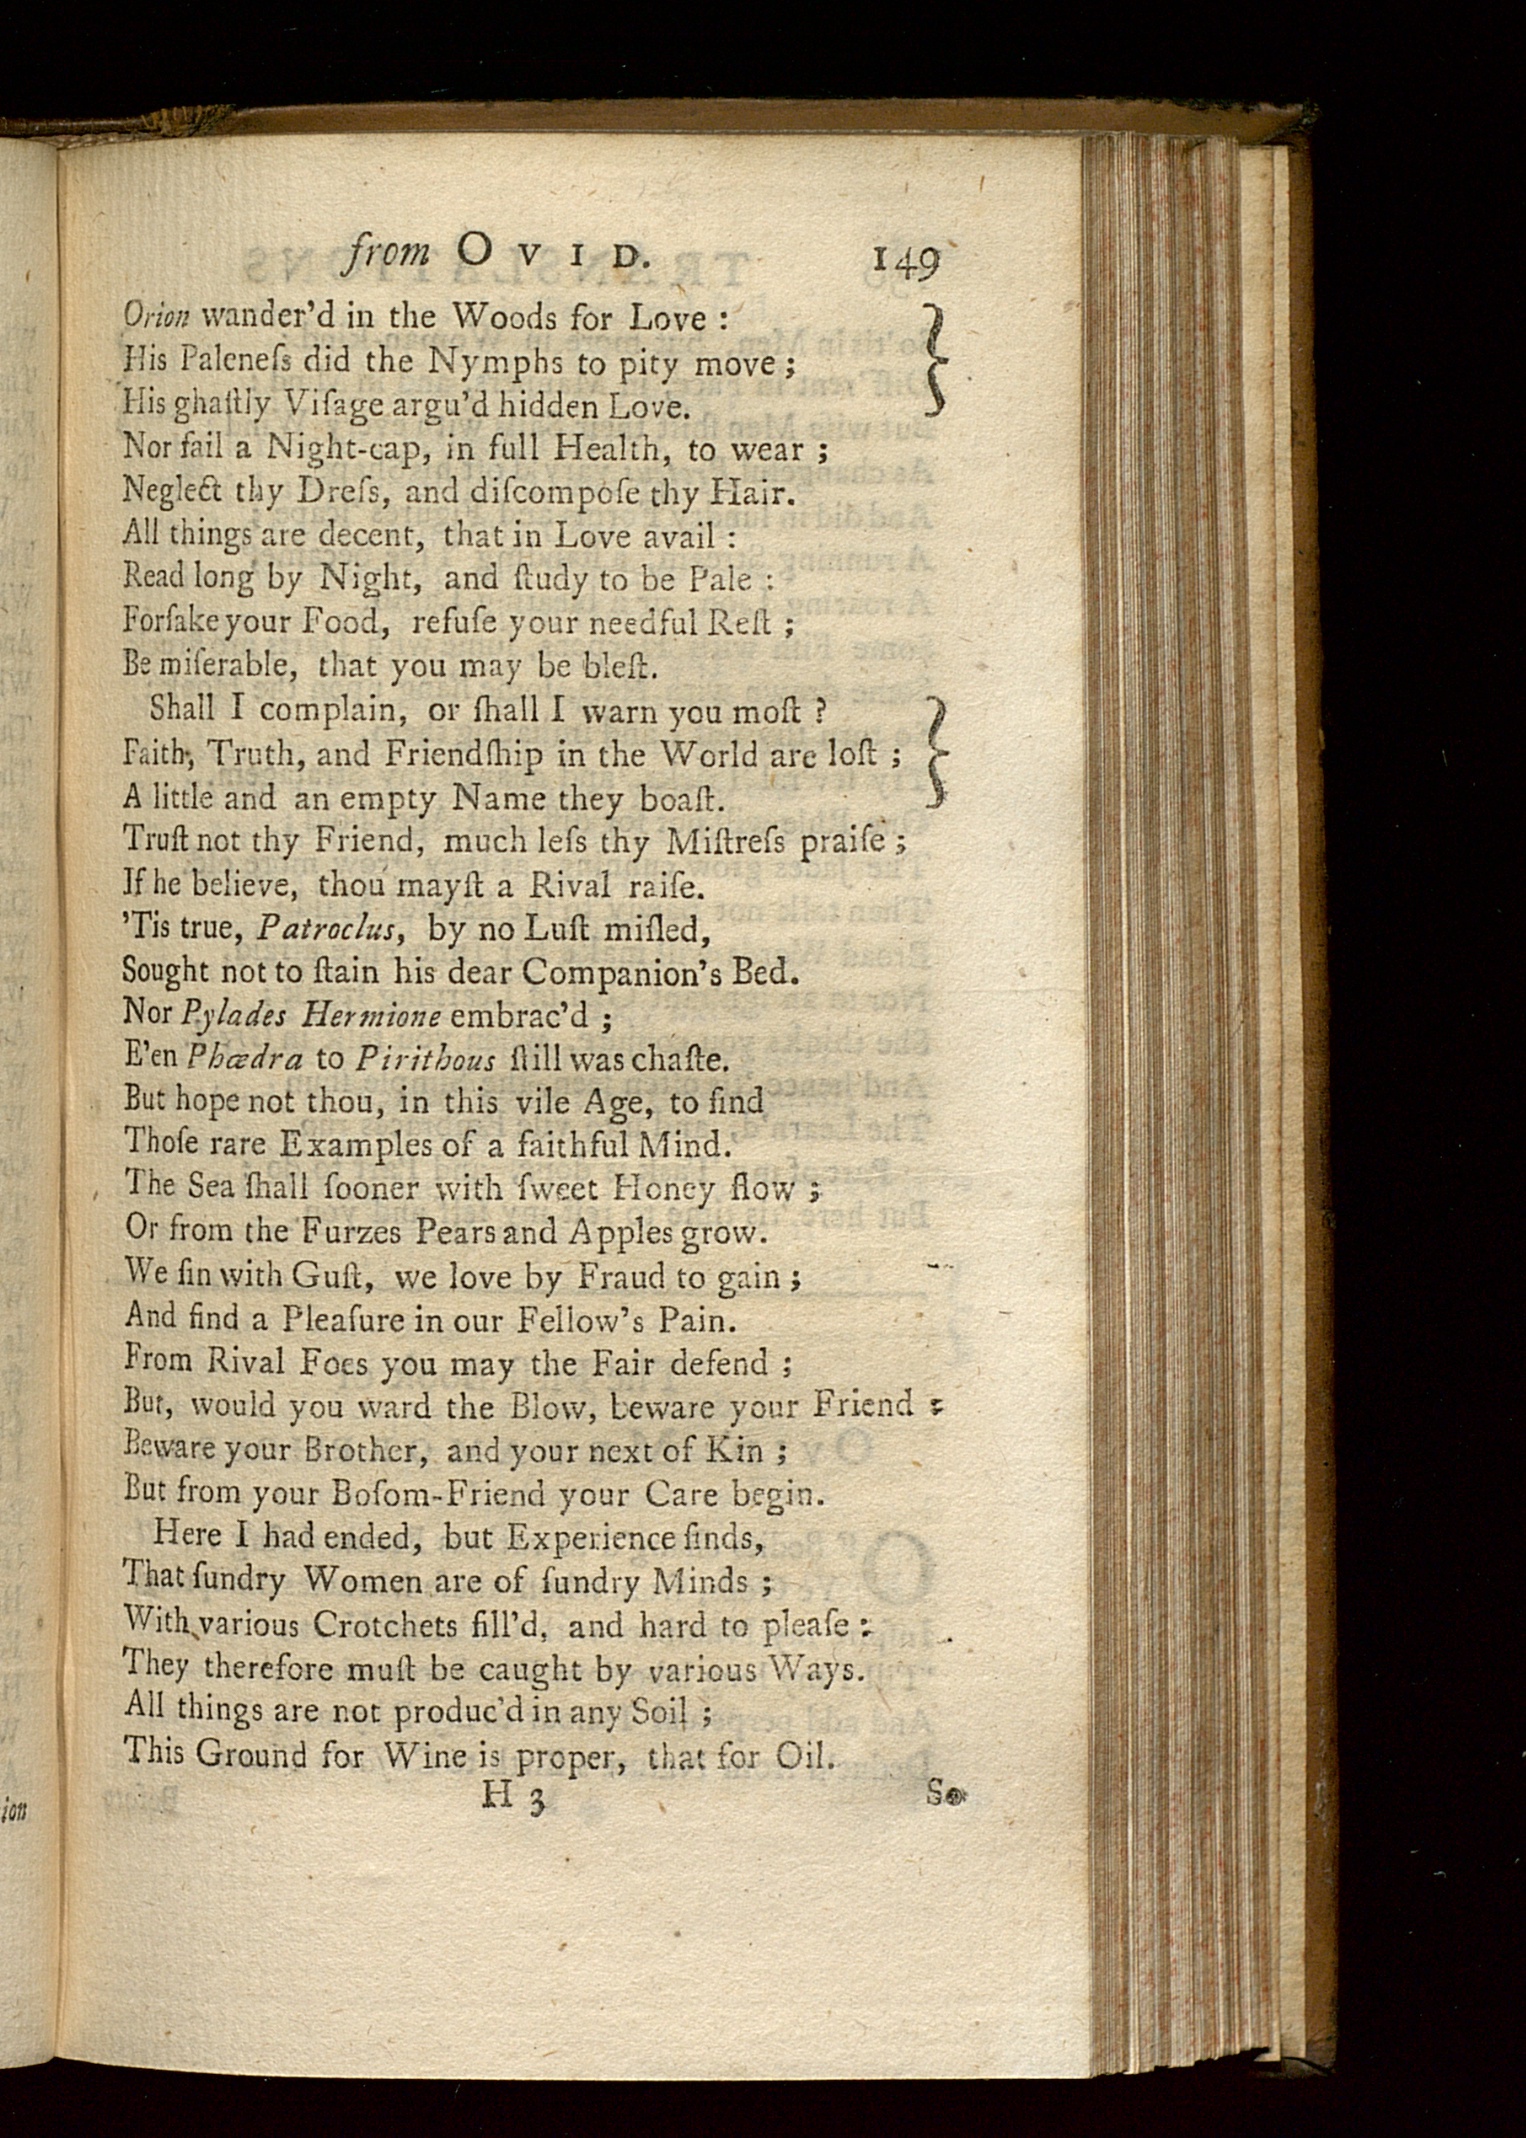 from OVID. 149
Orion wander'd in the Woods for Love :
His Paleneſs did the Nymphs to pity move ;
His ghaſtly Viſage argu'd hidden Love.
Nor fail a Night-cap, in full Health, to wear ;
Neglect thy Dreſs, and diſcompoſe thy Hair.
All things are decent, that in Love avail :
Read long by Night, and ſtudy to be Pale :
Forſake your Food, refuſe your needful Reſt ;
Be miſerable, that you may be bleſt.
Shall I complain, or ſhall I warn you moſt ?
Faith, Truth, and Friendſhip in the World are loſt ;
A little and an empty Name they boaſt.
Truſt not thy Friend, much leſs thy Miſtreſs praiſe ;
If he believe, thou mayſt a Rival raiſe.
'Tis true, Patroclus, by no Luſt miſled,
Sought not to ſtain his dear Companion's Bed.
Nor Pylades Hermione embrac'd ;
E'en Phædra to Pirithous ſtill was chaſte.
But hope not thou, in this vile Age, to find
Thoſe rare Examples of a faithful Mind.
The Sea ſhall ſooner with ſweet Honey flow ;
Or from the Furzes Pears and Apples grow.
We ſin with Guſt, we love by Fraud to gain ;
And find a Pleaſure in our Fellow's Pain.
From Rival Foes you may the Fair defend ;
But, would you ward the Blow, beware your Friend :
Beware your Brother, and your next of Kin ;
But from your Boſom-Friend your Care begin.
Here I had ended, but Experience finds,
That ſundry Women are of ſundry Minds ;
With various Crotchets fill'd, and hard to pleaſe :
They therefore muſt be caught by various Ways.
All things are not produc'd in any Soil ;
This Ground for Wine is proper, that for Oil.
H 3 So
ion